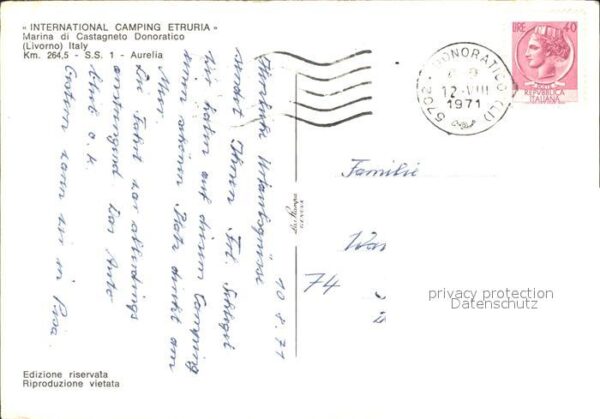 « INTERNATIONAL CAMPING ETRURIA »
Marina di Castagneto Donoratico
(Livorno) Italy
Km. 264,5 - S.S. 1 - Aurelia
LIRE 40
POSTE
REPVBBLICA
ITALIANA
57024 DONORATICO (LI)
12-VIII
1971
10.8.71
Herzliche Urlaubsgrüsse
sendet Ihnen Frl.
wir haben auf diesem Camping
einen schönen Platz direkt am
Meer.
Die Fahrt war allerdings
anstrengend das Auto
blieb o.k.
Gestern waren wir in Pisa.
Familie
Wa
74
La Stampa
GENOVA
privacy protection
Datenschutz
Edizione riservata
Riproduzione vietata